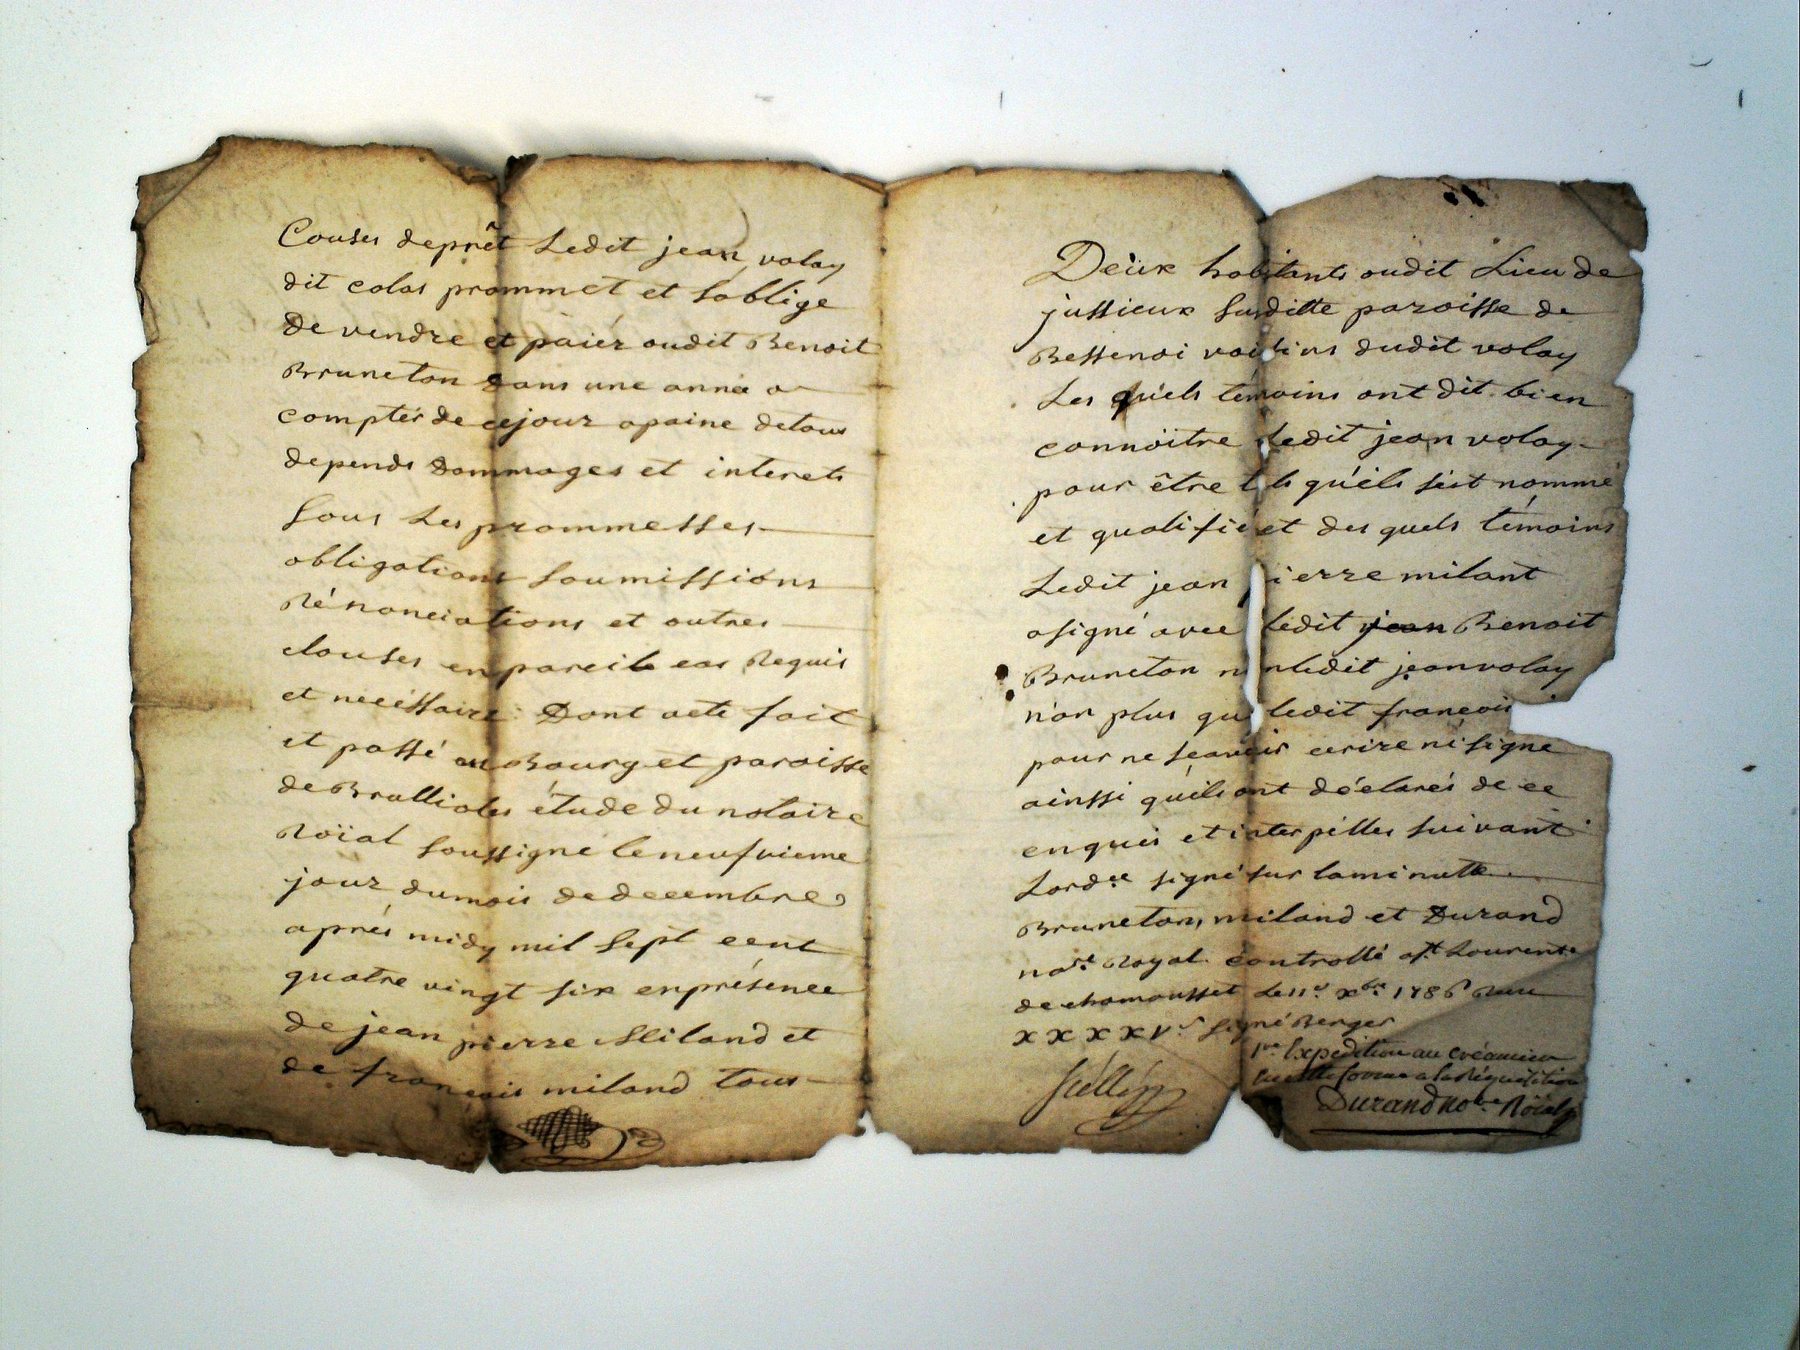 Couses deprêt Ledit jean volay
dit colas prommet et Soblige
De rendre et païér audit Benoit
Bruneton Dans une anneé a
comptér de cejour apaine detous
depends Dommages et interets
Sous Les prommesses
obligations Soumissións
Rénonciations et autres
clauses en pareile cas Requis
et necéssaire Dont acte fait
et passé au Bourg et paroisse
de Brullioles étude du notaire
Roïal Soussigné le neufvieme
jour du mois de decembre
aprés midy mil Sept cent
quatre vingt six enprésence
de jean pierre Miland et
de françois miland tous
Deüx habitants audit Lieu de
jussieux Susditte paroisse de
Bessenai voisins dudit volay
Les quéls témoins ont dit bien
connöitre Ledit jean volay
pour être tls qu'éls séit nommé
et qualifié et des quels témoins
Ledit jean pierre milant
asigné avec ledit jean Benoit
Bruneton n nledit jean volay
nòn plus qu ledit françois
pour ne sçavoir ecrire ni signé
ainssi quéils ont déclarés de ce
enquis et interpéllés suivant
Lordce signé sur laminutte
Bruneton, miland et Durand
nore Royal controllé a st Laurent
de chamousset Le 11e xbre 1786 Reçu
x x x x v s signé Berger
Scéllé
1re Expedition au créancier
Durand nore Röial